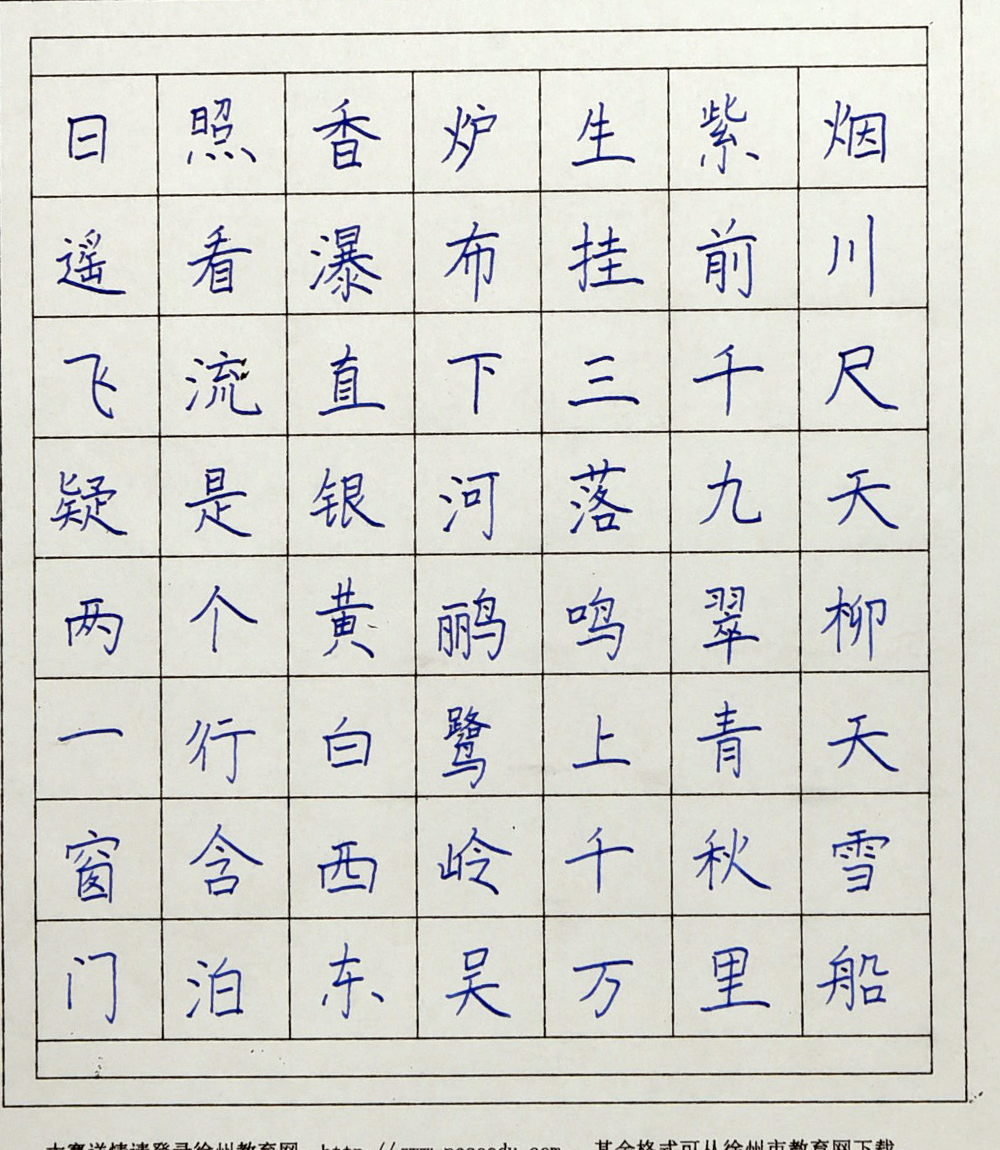 日照香炉生紫烟
遥看瀑布挂前川
飞流直下三千尺
疑是银河落九天
两个黄鹂鸣翠柳
一行白鹭上青天
窗含西岭千秋雪
门泊东吴万里船
大赛详情请登录徐州教育网 http://www. 其余格式可从徐州市教育网下载